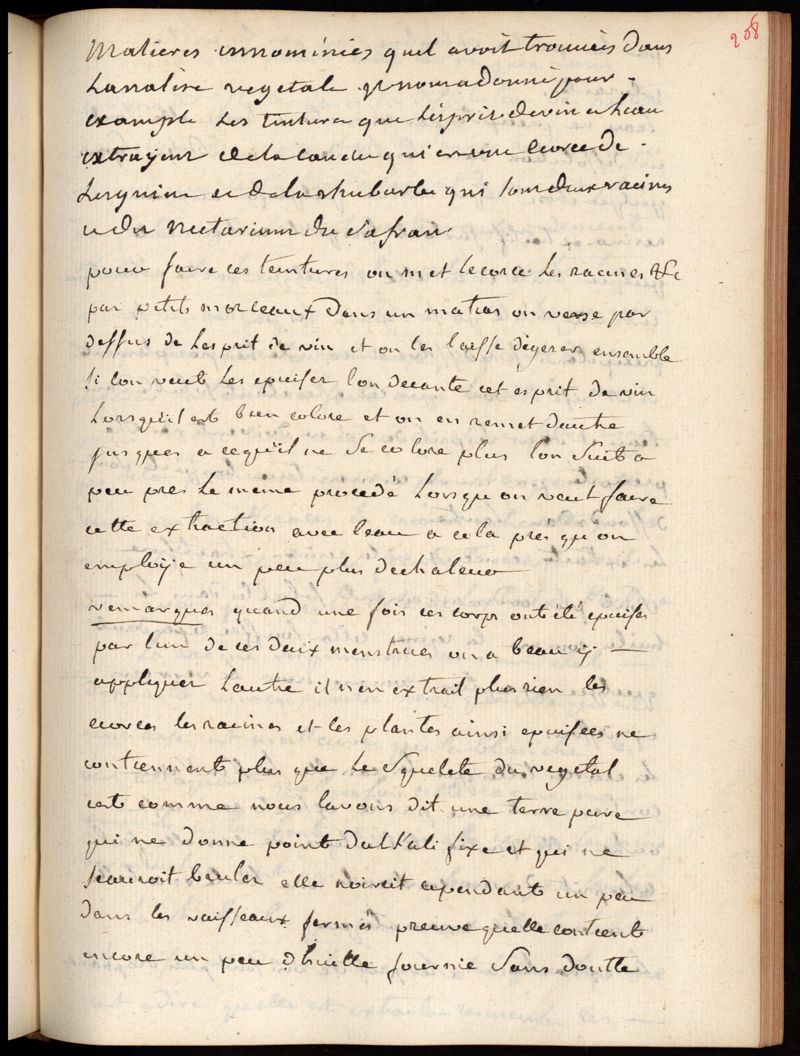 208
Matieres innominées quil avoit trouvées dans
Lanalise vegetale Il nous a donné pour -
example Les tintures que Lesprit de vin et Leau
extrayent de la cascarille qui est une ecorce de -
et de la rhubarbe qui sont deux racines
et du Nectarium du Safran
pour faire ces teintures on met lecorce Les racines &c
par petits morceaux dans un matras on verse par
dessus de Lesprit de vin et on les laisse digerer ensemble
Si lon veut Les epuiser lon decante cet esprit de vin
Lorsquil est bien coloré et on en remet dautre
jusques a cequil ne Se colore plus lon Suit a
peu près Le meme procedé Lorsquon veut faire
cette extraction avec leau a cela près quon
employe un peu plus de chaleur
remarques quand une fois ces corps ont été epuisés
par lun de ces deux menstrues on a beau y —
appliquer Lautre il nen extrait plus rien les
ecorces les racines et les plantes ainsi epuisées ne
contiennent plus que Le Squelete du vegetal
cest comme nous lavons dit une terre pure
qui ne donne point dalkali fixe et qui ne
scauroit bruler elle noircit cependant un peu
dans les vaisseaux fermés preuve quelle contient
encore un peu dhuille fournie Sans doutte